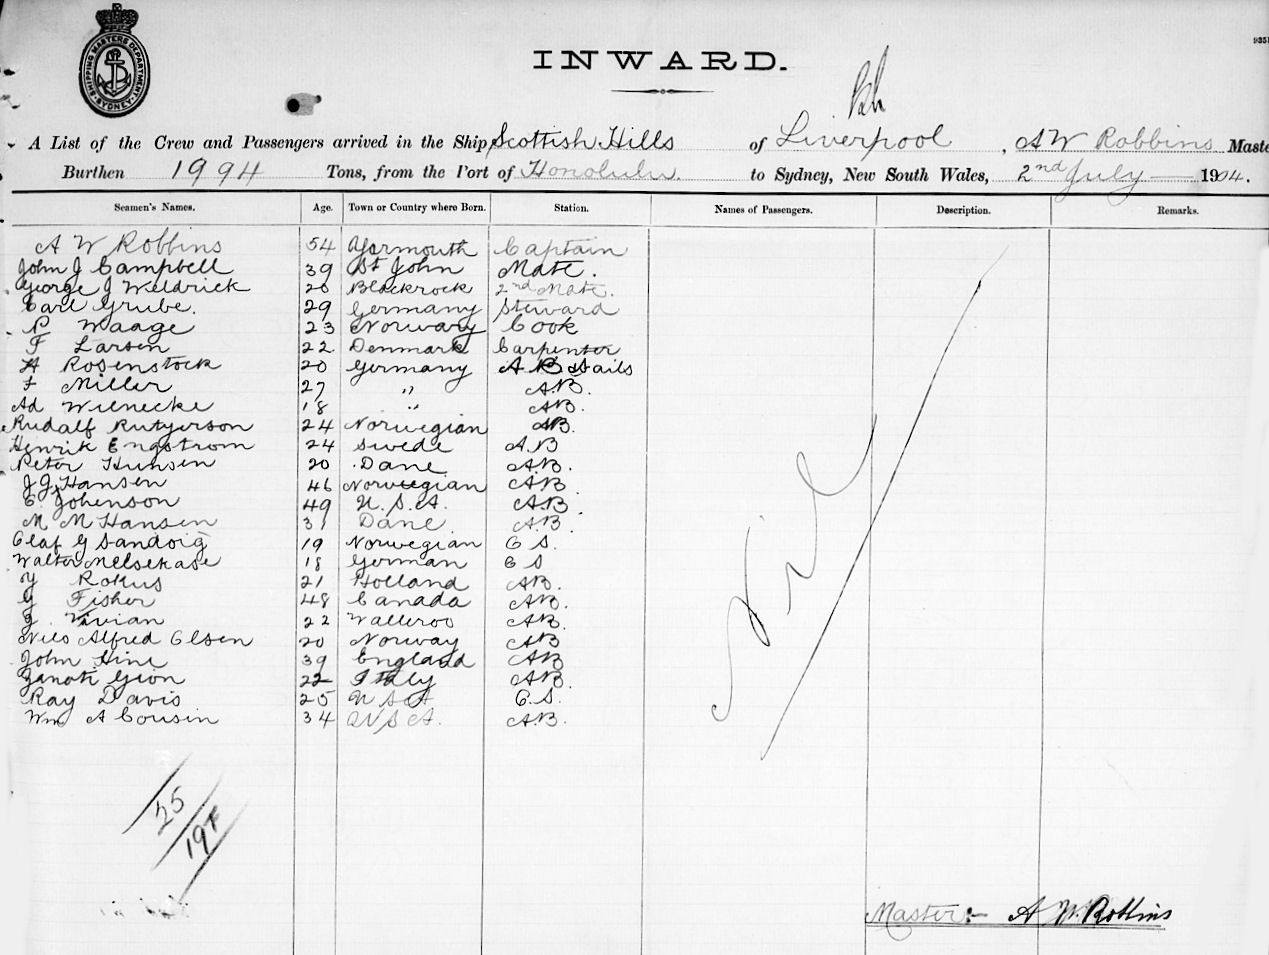 SHIPPING MASTERS DEPARTMENT SYDNEY
INWARD.
A List of the Crew and Passengers arrived in the Ship Scottish Hills of Liverpool, A W Robbins Maste
Burthen 1994 Tons, from the Port of Honolulu to Sydney, New South Wales, 2nd July 1904.
Seamen's Names. Age. Town or Country where Born. Station. Names of Passengers. Description. Remarks.
A W Robbins 54 Yarmouth Captain
John J Campbell 39 St John Mate.
George J Weldrick 20 Blackrock 2nd Mate.
Carl Grube. 29 Germany Steward
P Waage 23 Norway Cook
F Larsen 22 Denmark Carpenter
H Rosenstock 20 Germany A B Sails
F Miller 27 " A.B.
Ad Wienecke 18 " AB.
Rudalf Rutgerson 24 Norwegian AB.
Henrik Engstrom 24 Swede A B
Peter Hunsen 20 Dane A.B.
J J Hansen 46 Norwegian A.B.
C. Johenson 49 U.S.A. A.B.
M M Hansen 31 Dane A.B.
Olaf G Sandoig 19 Norwegian O S.
Walter 18 German O S
Y Rokus 21 Holland AB.
G Fisher 48 Canada AB.
Vivian 22 Walleroo AB.
Nils Alfred Olsen 20 Norway AB
John Hine 39 England AB
Zanoti Gion 22 Italy AB.
Ray Davis 25 U S A O.S.
Wm A Cousin 34 U S A. A.B.
Nil
25
Master:- A W. Robbins